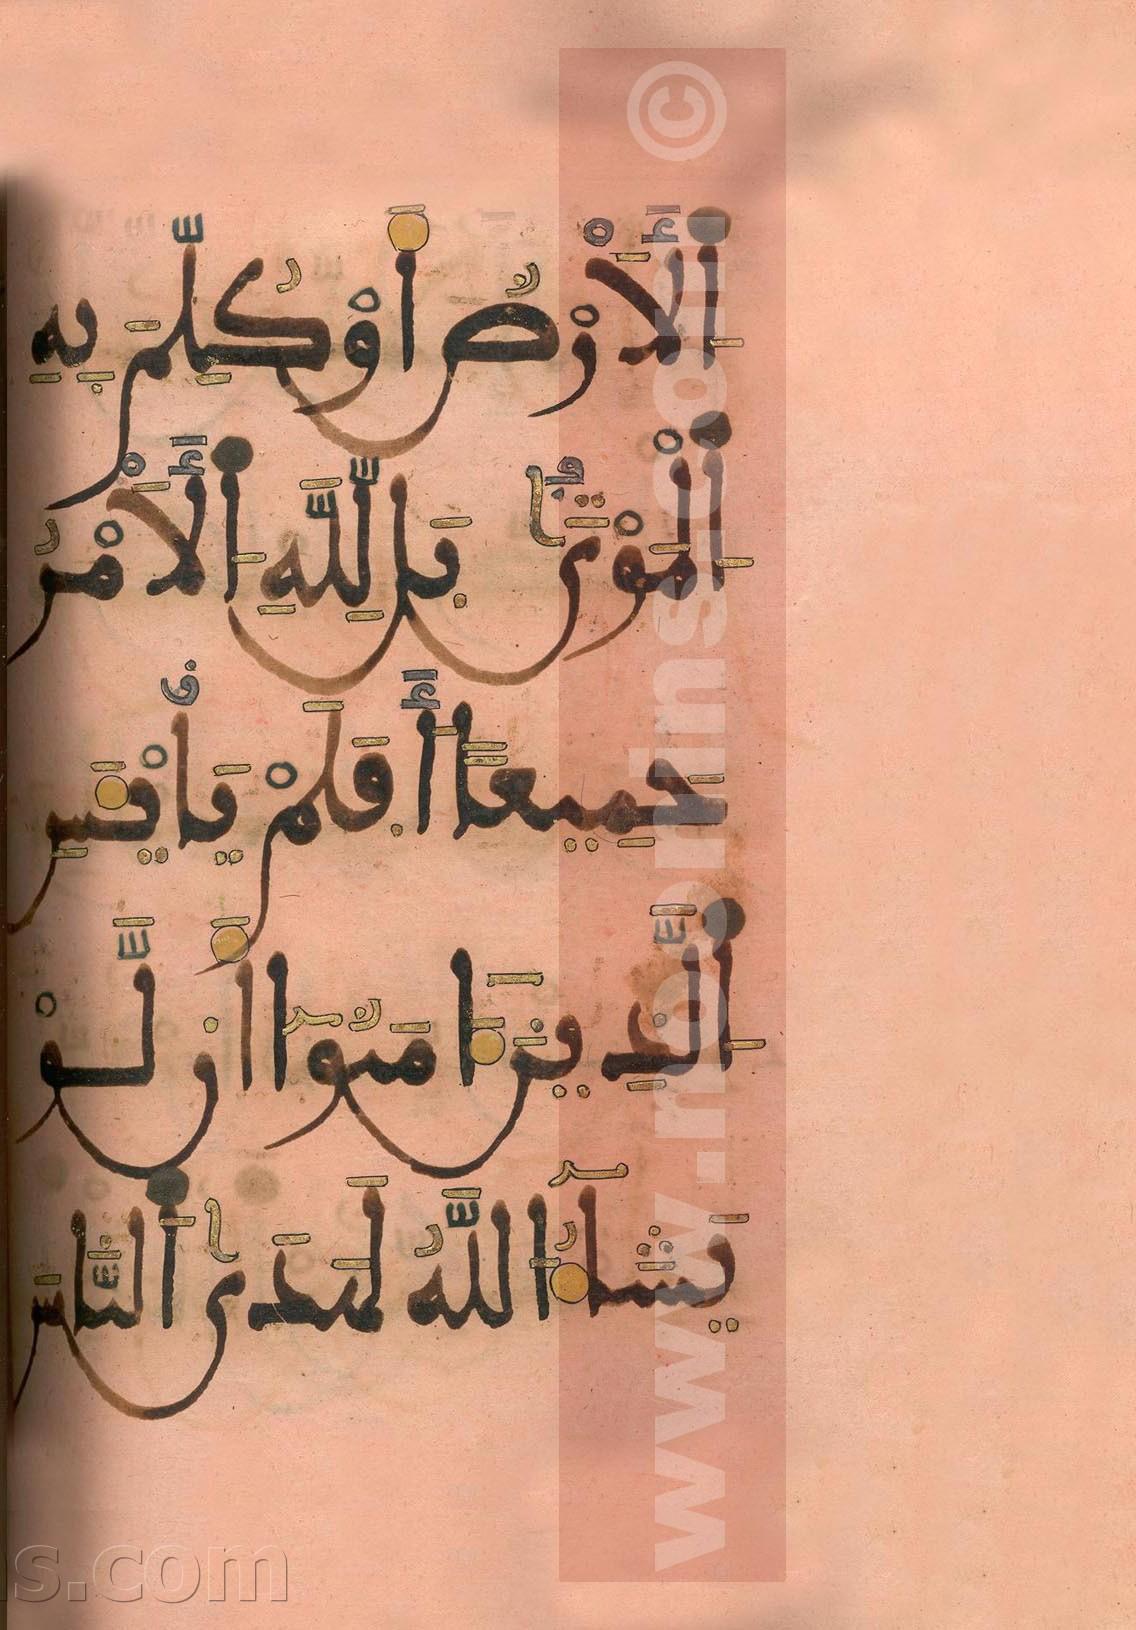 اَلَارْضُ أَوْ كُلِّمَ بِهِ
اِلْمَوْتَىٰ بَل لِّلَّهِ اِلَامْرُ
جَمِيعًا اَفَلَمْ يَاْيْـَٔسِ
اِلذِينَ ءَامَنُوا أَن لَّوْ
يَشَآءُ اللَّهُ لَهَدَى اَلنَّاسَ
© www.noorlins.com
ns.com